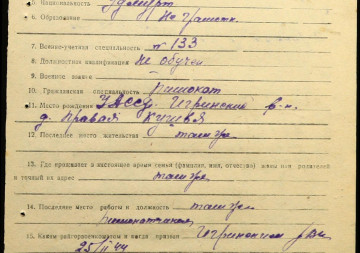 5. Национальность Удмурт
6. Образование Не грамотн.
7. Военно-учетная специальность № 133
8. Должностная квалификация Не обучен
9. Военное звание
10. Гражданская специальность
11. Место рождения УАССР. Игринский р-н.
д. Правая Кушья
12. Последнее место жительства там же
13. Где проживает в настоящее время семья (фамилия, имя, отчество) жены или родителей
и точный их адрес там же
14. Последнее место работы и должность там же
15. Каким райгорвоенкоматом и когда призван Игринским РВК
25/II 44